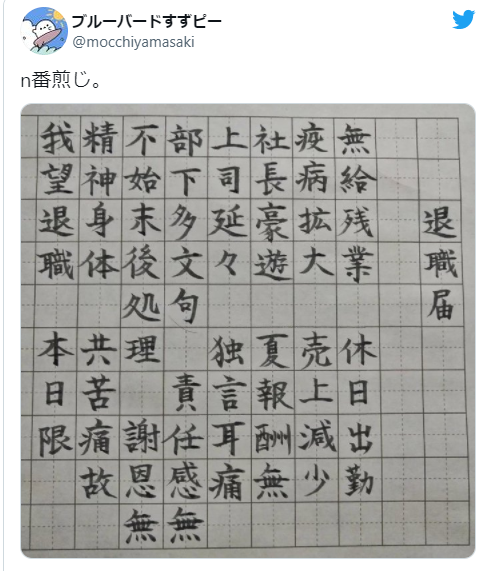 ブルーバードすずピー
@mocchiyamasaki
n番煎じ。
退職届
無給残業　休日出勤
疫病拡大　売上減少
社長豪遊　夏報酬無
上司延々　独言耳痛
部下多文句　責任感無
不始末後処理　謝恩無
精神身体　共苦痛故
我望退職　本日限